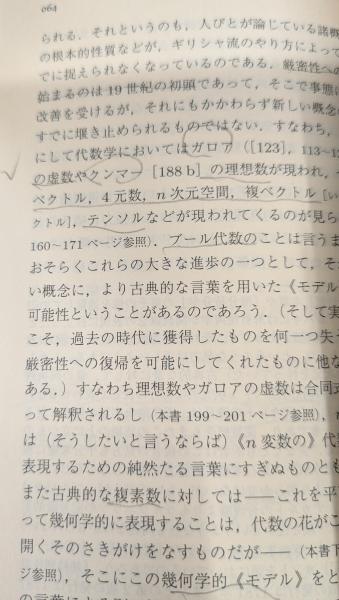 064
られる．それというのも，人びとが論じている諸概
の根本的性質などが，ギリシャ流のやり方によって
でに捉えられなくなっているのである．厳密性への
始まるのは19世紀の初頭であって，そこで事態に
改善を受けるが，それにもかかわらず新しい概念に
すでに堰き止められるものではない．すなわち，
にして代数学においてはガロア（[123], 113~1
の虚数やクンマー [188 b] の理想数が現われ，
ベクトル，4元数，n 次元空間，複ベクトル［い
クトル］，テンソルなどが現われてくるのが見ら
160~171 ページ参照）．ブール代数のことは言うま
おそらくこれらの大きな進歩の一つとして，そ
い概念に，より古典的な言葉を用いた《モデル
可能性ということがあるのであろう．（そして実
こそ，過去の時代に獲得したものを何一つ失
厳密性への復帰を可能にしてくれたものに他な
ある．）すなわち理想数やガロアの虚数は合同
って解釈されるし（本書 199~201 ページ参照），n
は（そうしたいと言うならば）《n 変数の》代
表現するための純然たる言葉にすぎぬものとも
また古典的な複素数に対しては――これを平
って幾何学的に表現することは，代数の花がこ
開くそのさきがけをなすものだが――（本書下
ジ参照），そこにこの幾何学的《モデル》をと